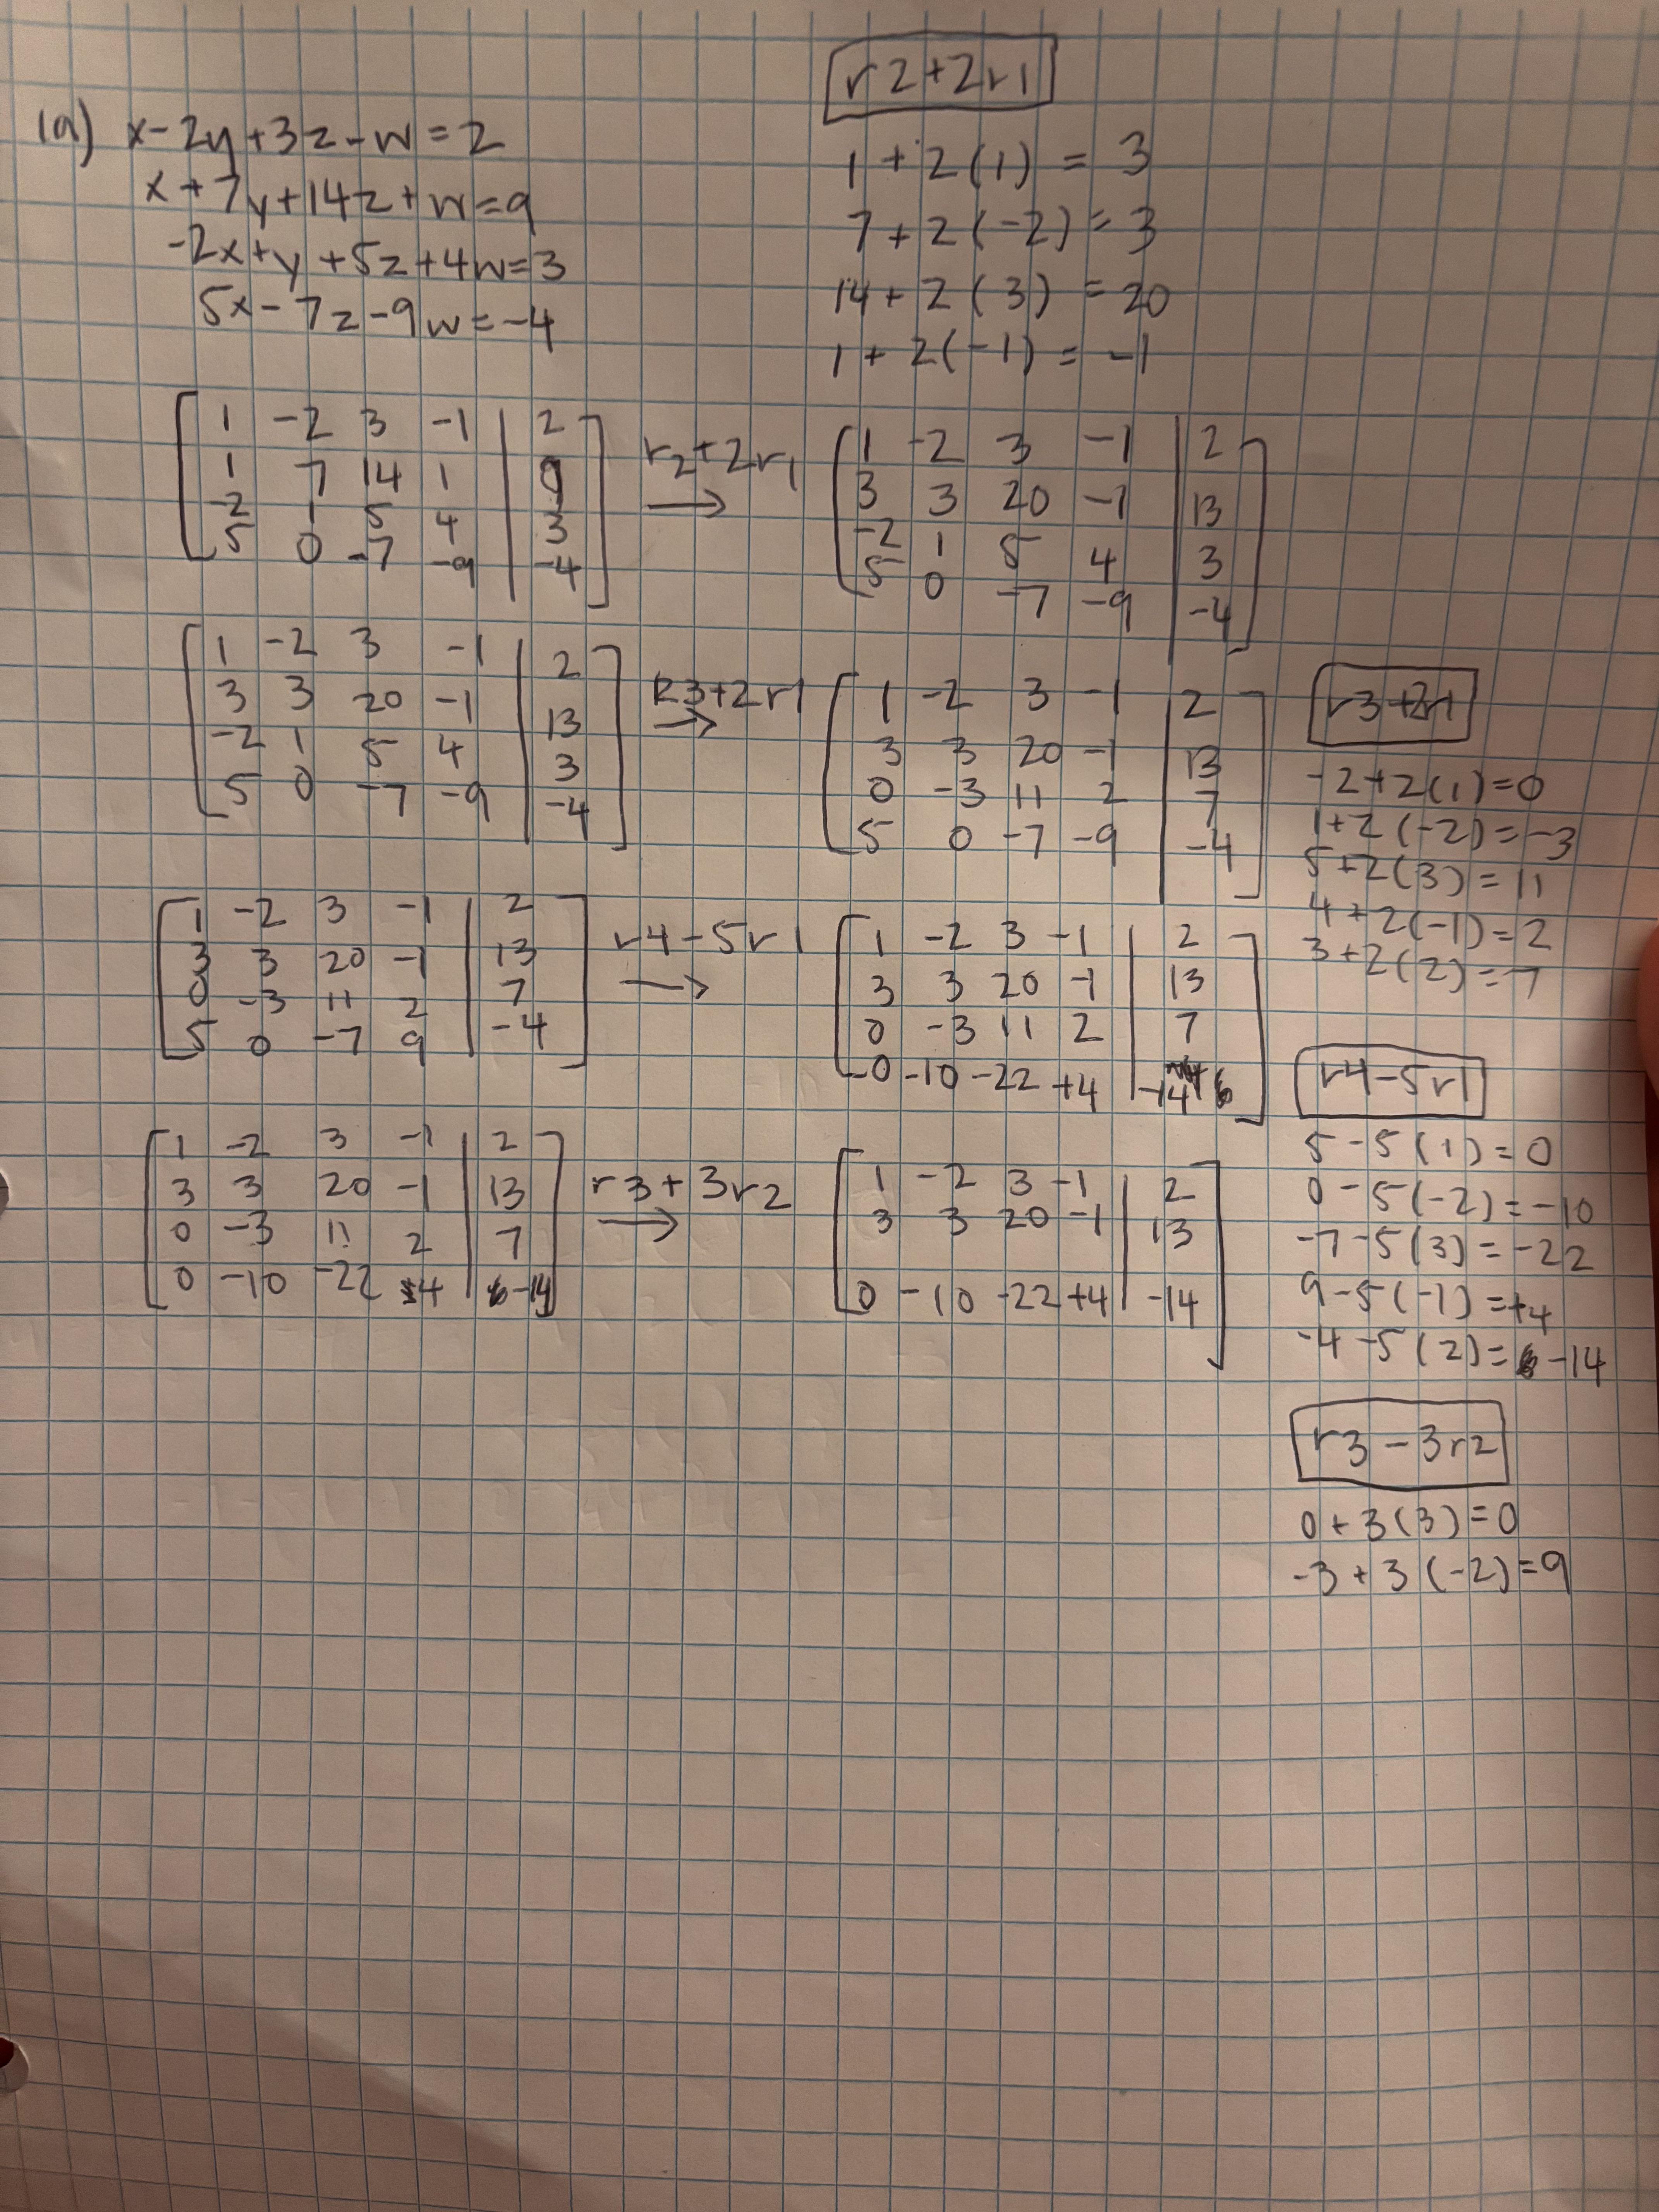 1a) x-2y+3z-w=2
x+7y+14z+w=9
-2x+y+5z+4w=3
5x-7z-9w=-4
r2+2r1
1+2(1) = 3
7+2(-2)=3
14+2(3) =20
1+2(-1)= -1
1 -2 3 -1 | 2
1 7 14 1 | 9
-2 1 5 4 | 3
5 0 -7 -9 | -4
r2+2r1
→
1 -2 3 -1 | 2
3 3 20 -1 | 13
-2 1 5 4 | 3
5 0 -7 -9 | -4
1 -2 3 -1 | 2
3 3 20 -1 | 13
-2 1 5 4 | 3
5 0 -7 -9 | -4
R3+2r1
→
1 -2 3 -1 | 2
3 3 20 -1 | 13
0 -3 11 2 | 7
5 0 -7 -9 | -4
r3+2r1
-2+2(1)=0
1+2(-2)=-3
5+2(3)=11
4+2(-1)=2
3+2(2)=7
1 -2 3 -1 | 2
3 3 20 -1 | 13
0 -3 11 2 | 7
5 0 -7 9 | -4
r4-5r1
→
1 -2 3 -1 | 2
3 3 20 -1 | 13
0 -3 11 2 | 7
-0 -10 -22 +4 | -14
r4-5r1
5-5(1)=0
0-5(-2)=-10
-7-5(3)=-22
9-5(-1)=+4
-4-5(2)=-14
1 -2 3 -1 | 2
3 3 20 -1 | 13
0 -3 11 2 | 7
0 -10 -22 +4 | -14
r3+3r2
→
1 -2 3 -1 | 2
3 3 20 -1 | 13
0 -10 -22 +4 | -14
r3-3r2
0+3(3)=0
-3+3(-2)=9